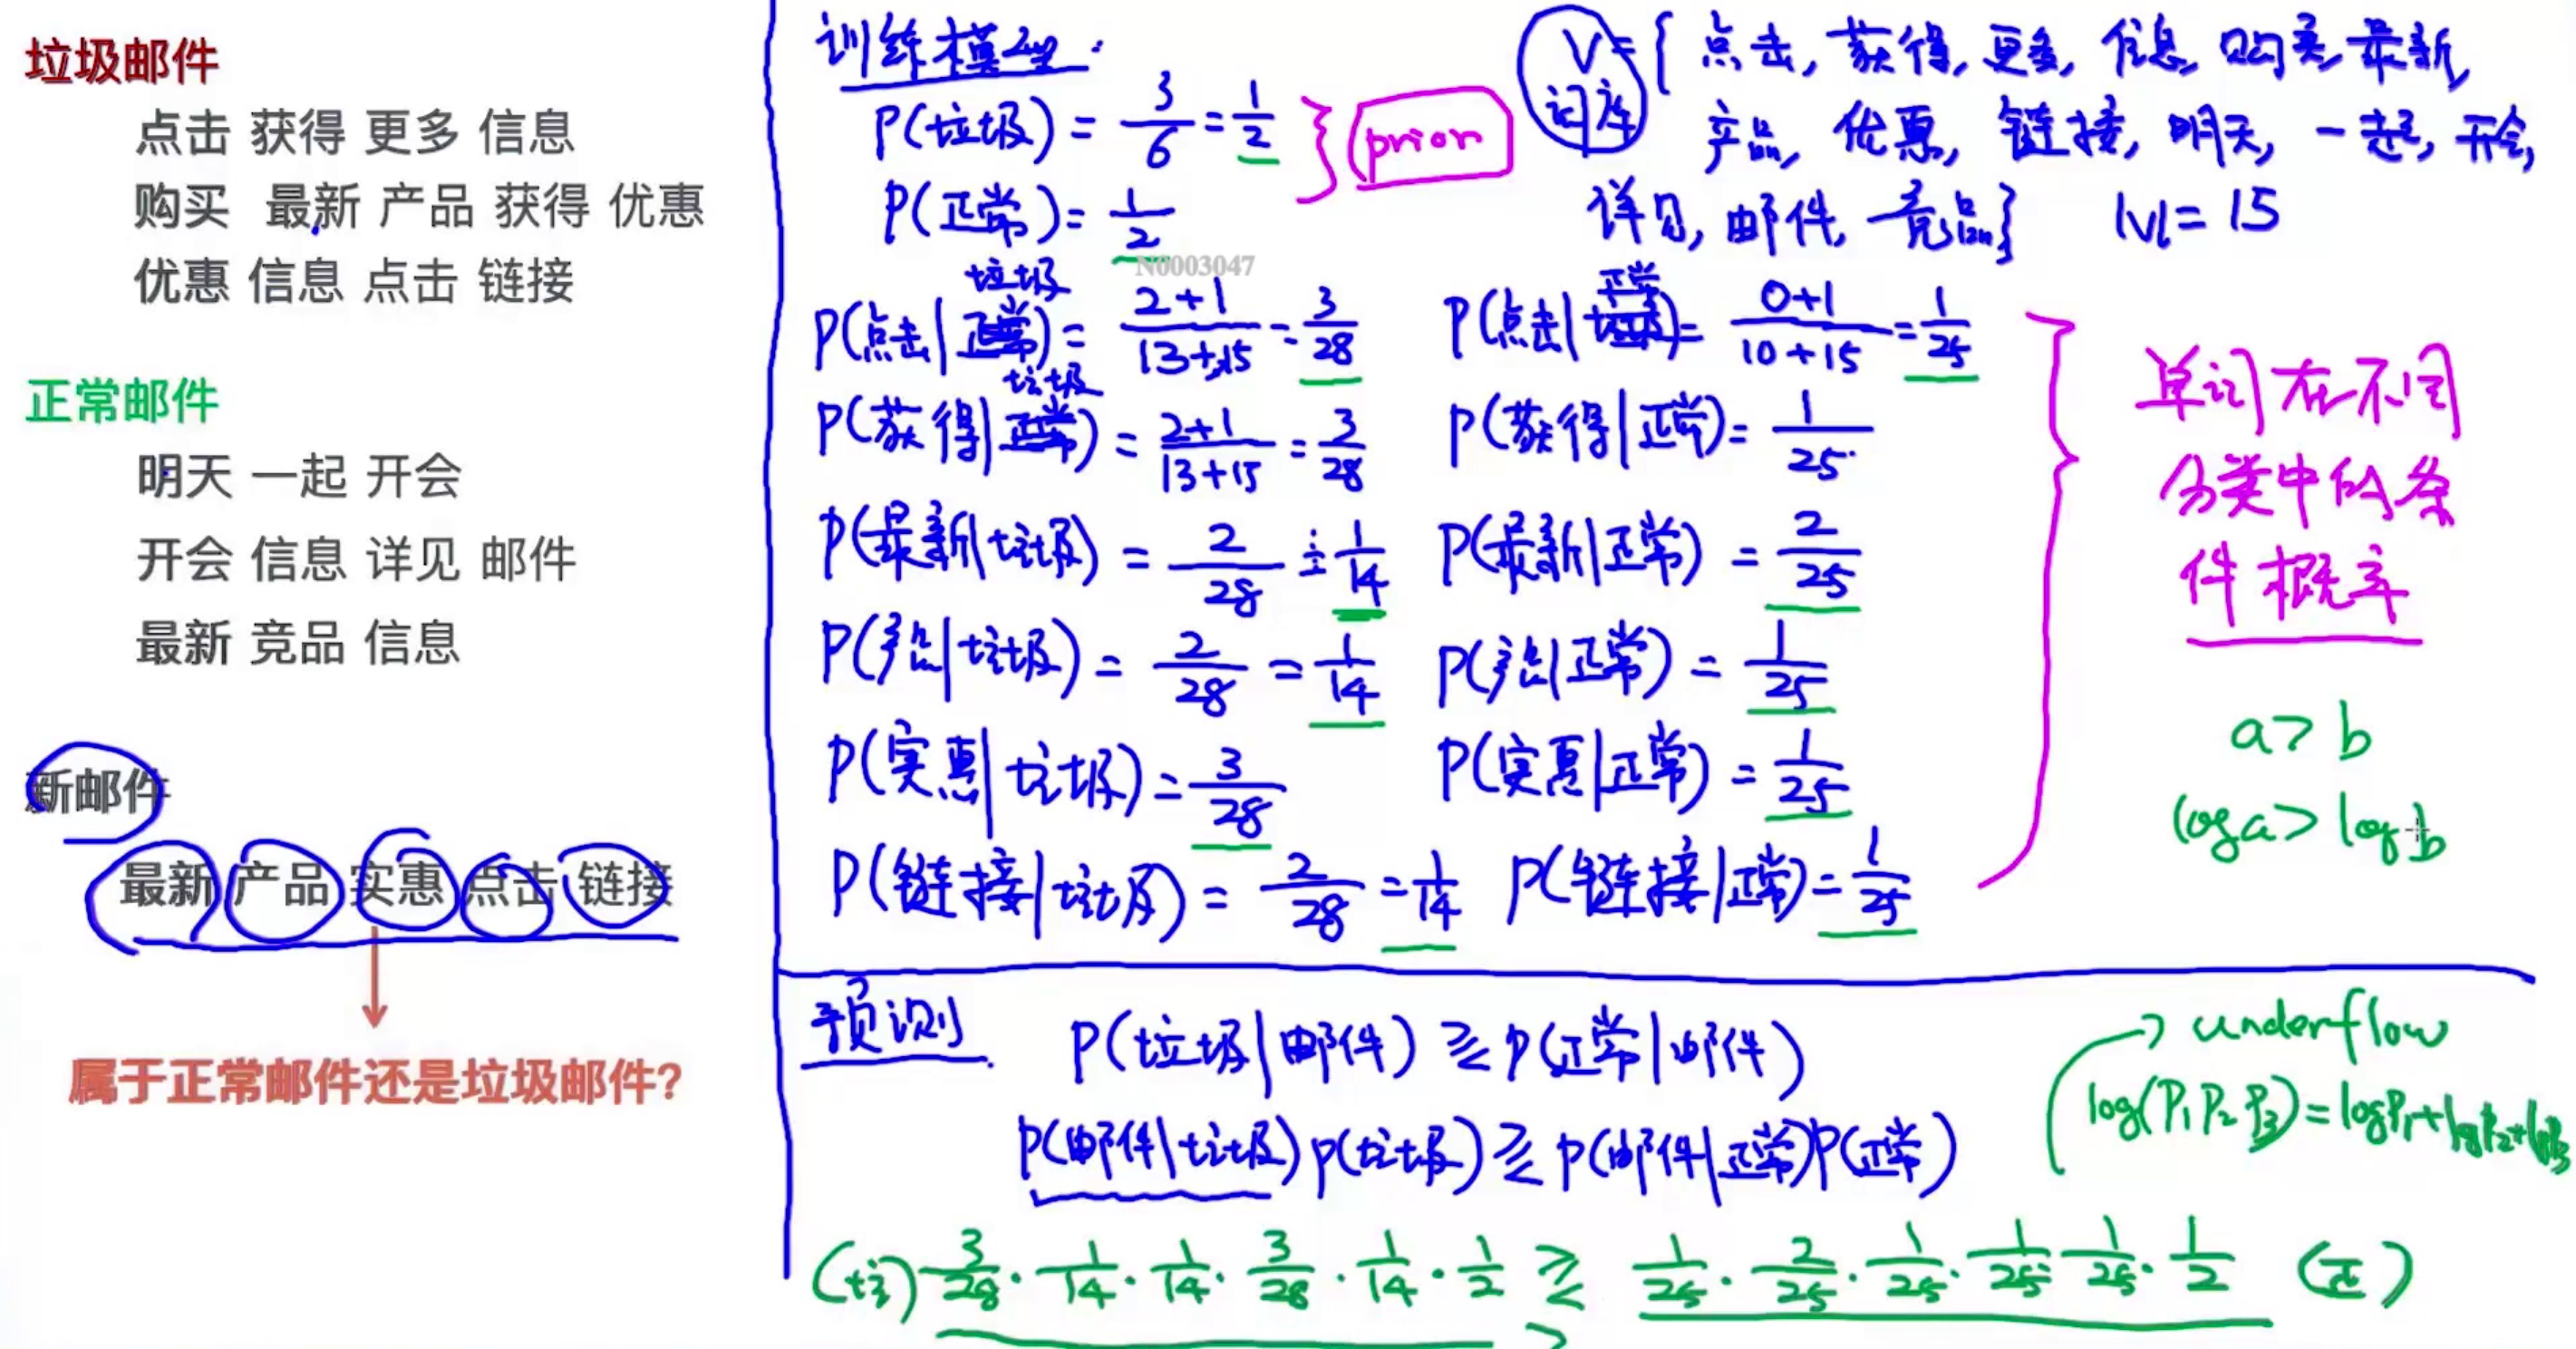 垃圾邮件
点击 获得 更多 信息
购买 最新 产品 获得 优惠
优惠 信息 点击 链接
正常邮件
明天 一起 开会
开会 信息 详见 邮件
最新 竞品 信息
新邮件
最新 产品 实惠 点击 链接
属于正常邮件还是垃圾邮件?
训练模型:
P(垃圾) = 3/6 = 1/2
P(正常) = 1/2
prior
V = { 点击, 获得, 更多, 信息, 购买, 最新,
词库
产品, 优惠, 链接, 明天, 一起, 开会,
详见, 邮件, 竞品} |V| = 15
N0003047
P(点击|垃圾) = 2+1/13+15 = 3/28 P(点击|正常) = 0+1/10+15 = 1/25
P(获得|垃圾) = 2+1/13+15 = 3/28 P(获得|正常) = 1/25
P(最新|垃圾) = 2/28 = 1/14 P(最新|正常) = 2/25
P(产品|垃圾) = 2/28 = 1/14 P(产品|正常) = 1/25
P(实惠|垃圾) = 3/28 P(实惠|正常) = 1/25
P(链接|垃圾) = 2/28 = 1/14 P(链接|正常) = 1/25
单词在不同
分类中的条
件概率
a > b
log a > log b
预测
P(垃圾|邮件) ≷ P(正常|邮件)
P(邮件|垃圾) P(垃圾) ≷ P(邮件|正常) P(正常)
underflow
log(P1 P2 P3) = log P1 + log P2 + log P3
(垃) 3/28 · 1/14 · 1/14 · 3/28 · 1/14 · 1/2 ≷ 1/25 · 2/25 · 1/25 · 1/25 · 1/25 · 1/2 (正)
>